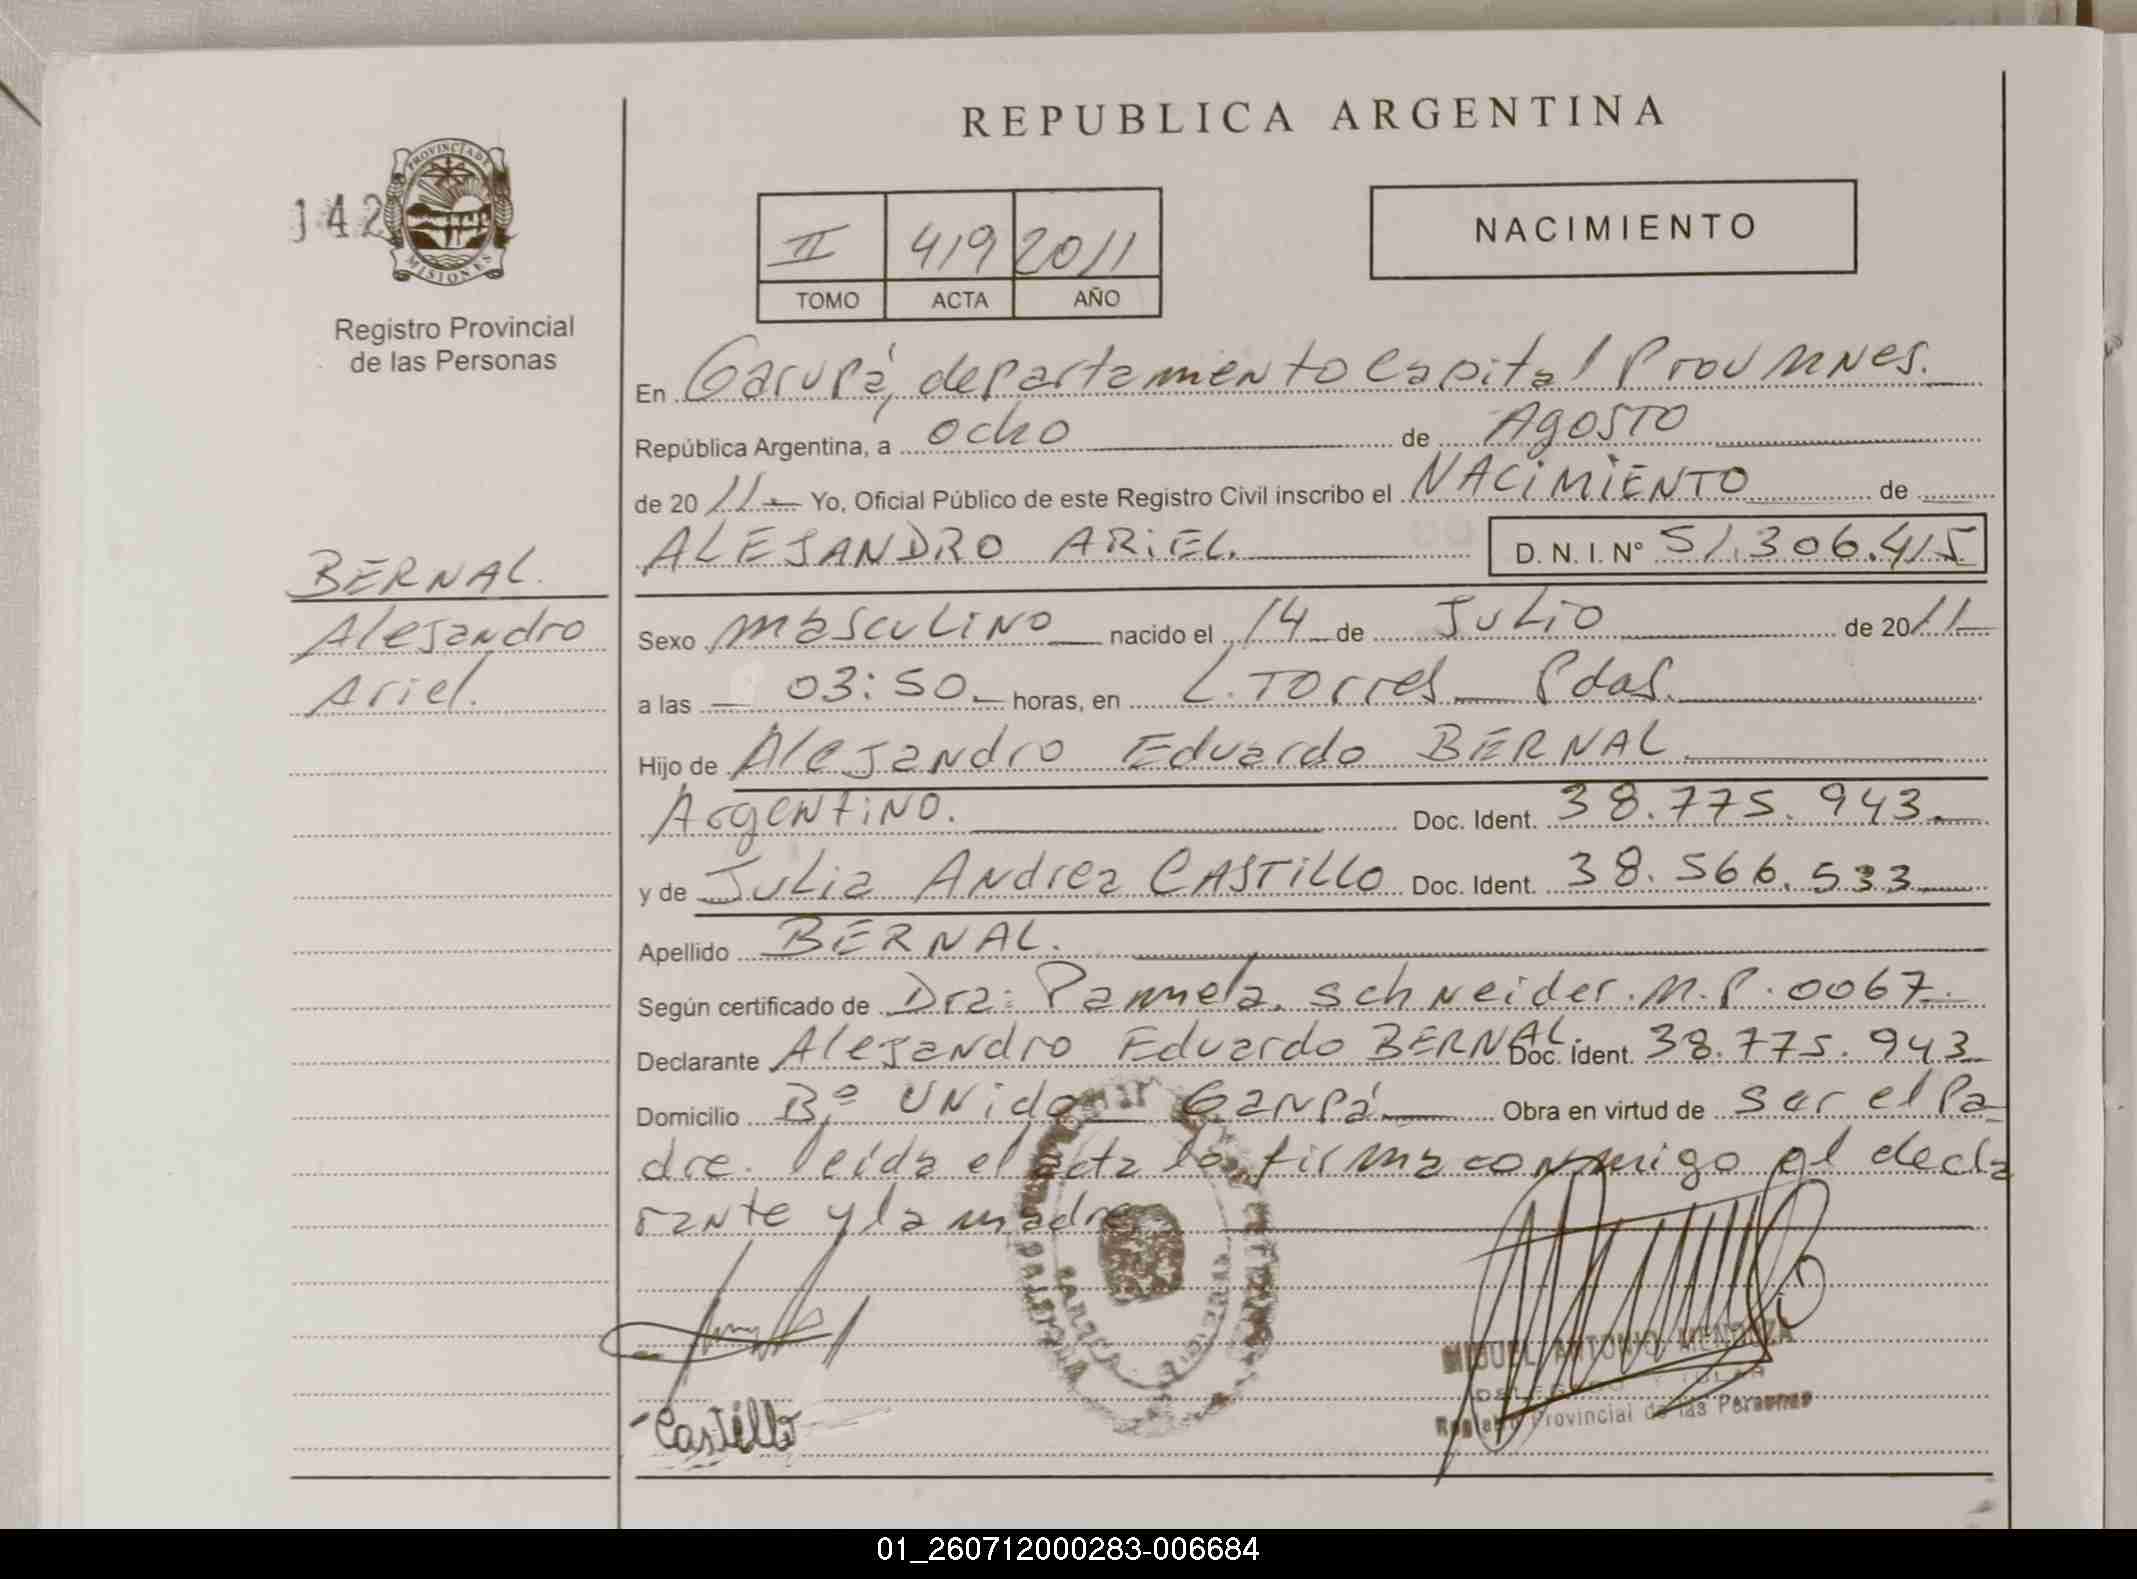 REPUBLICA ARGENTINA
142
PROVINCIA DE
MISIONES
Registro Provincial
de las Personas
II 419 2011
TOMO ACTA AÑO
NACIMIENTO
En Garupá, departamento Capital Prov Mnes.
República Argentina, a ocho de Agosto
de 2011 Yo, Oficial Público de este Registro Civil inscribo el NACIMIENTO de
ALEJANDRO ARIEL. D. N. I. N° 51.306.415
BERNAL.
Alejandro
Ariel.
Sexo masculino nacido el 14 de Julio de 2011
a las 03:50 horas, en L. Torres Pdas.
Hijo de Alejandro Eduardo BERNAL
Argentino. Doc. Ident. 38.775.943.
y de Julia Andrea CASTILLO Doc. Ident. 38.566.533
Apellido BERNAL.
Según certificado de Dra: Pamela. Schneider. M.P. 0067.
Declarante Alejandro Eduardo BERNAL Doc. Ident. 38.775.943
Domicilio Bº Unido Garupá Obra en virtud de ser el Pa
dre. leída el acta la firma conmigo el decla
rante y la madre
Castillo
MIGUEL ANTONIO MENDOZA
DELEGADO TITULAR
Registro Provincial de las Personas
01_260712000283-006684